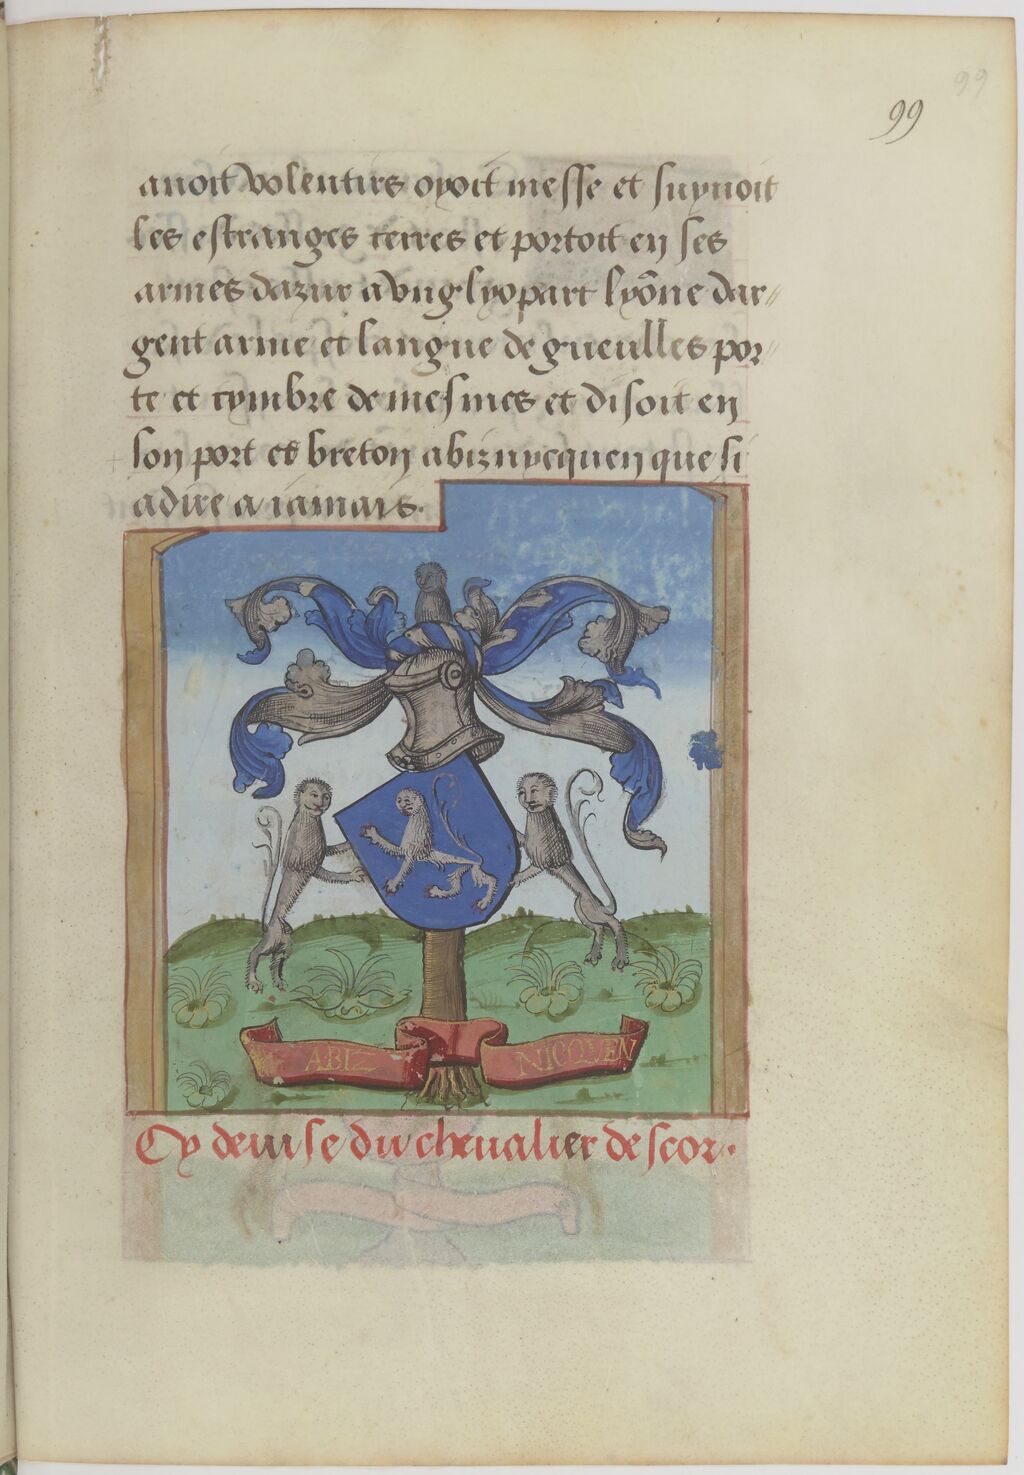 99
99
auoit volentirs oyoit messe et suyuoit
les estranges terres et portoit en ses
armes dazur a vng lyopart lyõne dar〃
gent arme et langue de gueulles por〃
te et tymbre de mesmes et disoit en
son port et breton abiz nycquen que si
adire a iamais.
ABIZ NICQVEN
Cy deuise du cheualier de scor.